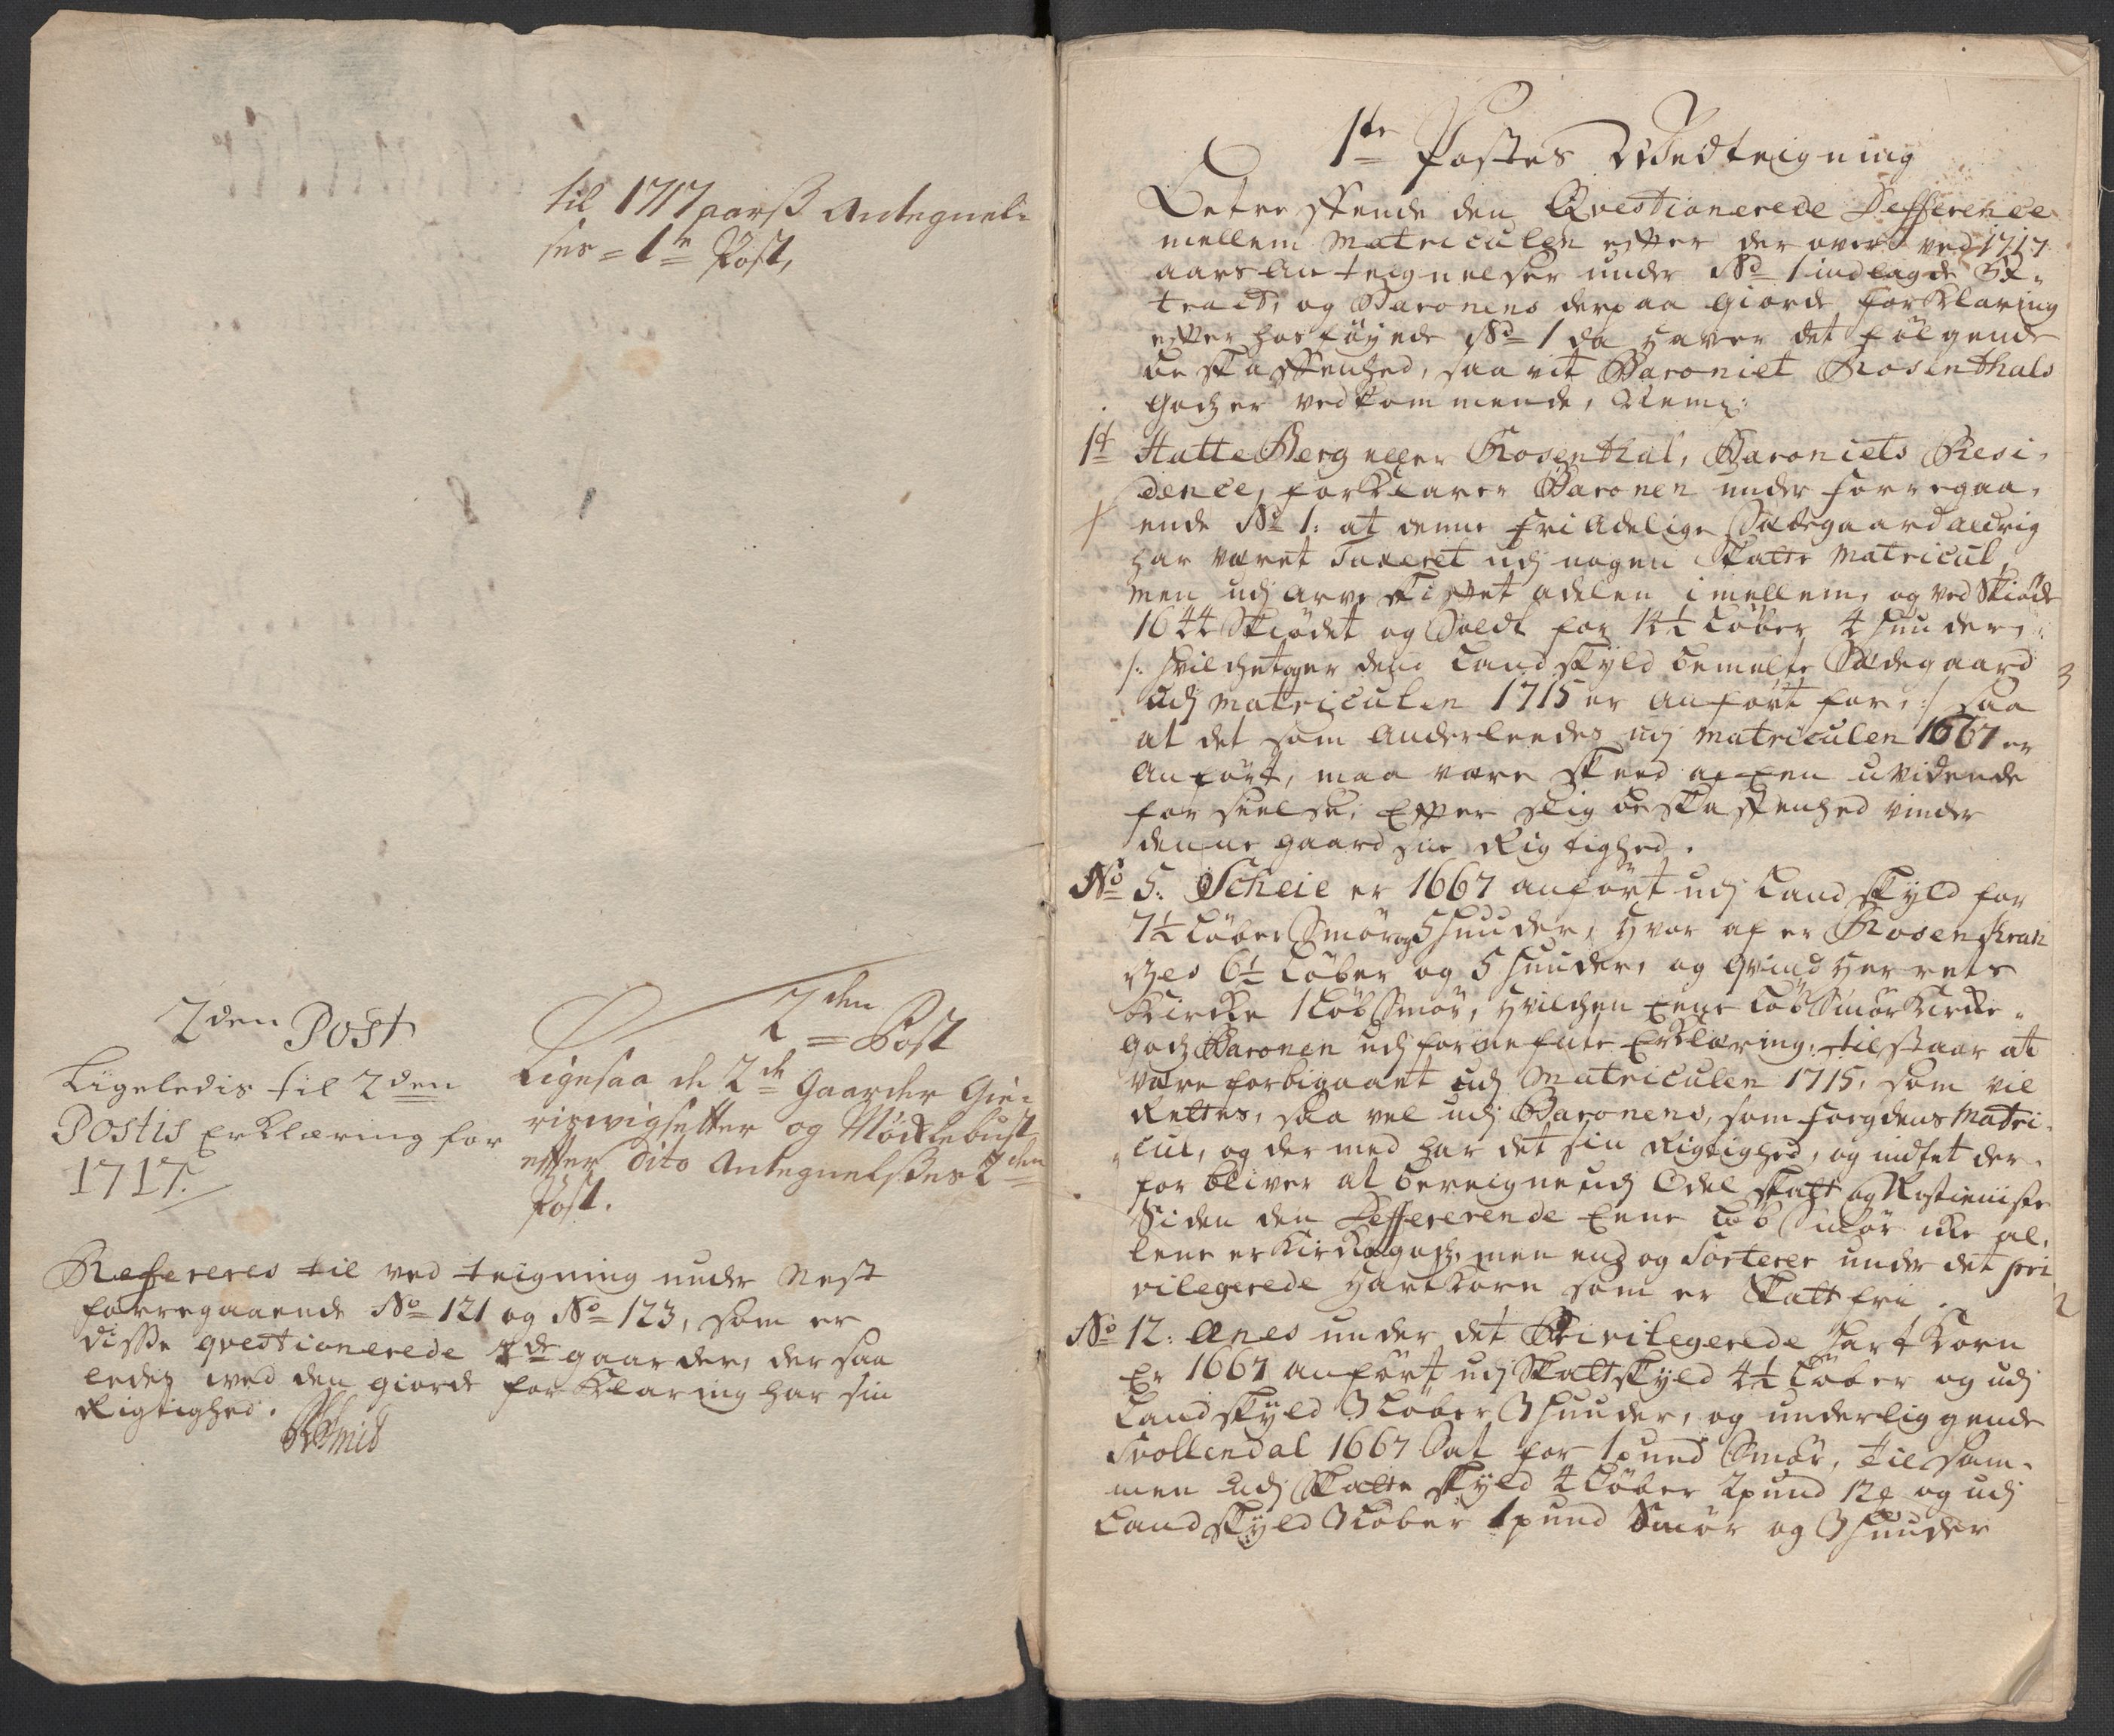 til 1717 aarß Antegnel-
ses = 1te Post,
2den Post
Ligeledis til 2den
Postis Erklæring for
1717.
2den Post
Ligesaa de 2de Gaarder Gie-
riswigsetter og Möcklebust
efter Dito Antegnelßes 2den
Post.
Refereres til ved teigning under Nest
forregaaende No 121 og No 123, som er
disse qvestionerede 2de gaarder, der saa
ledes med den giorde forklaring har sin
Rigtighed.
1te Postes Vedteigning
den Qvestionerede Defference
mellem Matriculen efter der over ved 1717
aars Antteignelser under No 1 indlagde Ex-
tract, og Baronens derpaa giorde forklaring
efter hosföyede No 1 da haver det fölgende
beskaffenhed, saa vit Baroniet Rosenthals
Godz er vedkommende, Neml:
1t Hatteberg eller Rosenthal, Baroniets Resi-
dence, forklarer Baronen under forregaa-
ende No 1: at denne fri Adelige Sædegaard aldrig
har været Taxeret udj nogen Skatte Matricul,
men udj arve skiftet adelen imellem, og ved Skiöde
1644 Skiödet og Soldt for 14½ Löber 4 huuder,
/: hvilchet er dend Landskyld bemelte Sædegaard
udj Matriculen 1715 er anfört for, :/ saa
at det som Anderleedes udj Matriculen 1667 er
Anfört, maa være skeed af Een uvidende
for seelse, Efter slig beskaffenhed vinder
denne gaard sin Rigtighed.
No 5: Scheie er 1667 anfört udj Landskyld for
7½ Löber Smör og 5 huuder, hvor af er Rosenkran
tzes 6½ Löber og 5 huuder, og Qvindherrets
Kircke 1 Löb Smör, hvilchen Eene Löb Smör Kircke-
godz Baronen udj forbemelte Erklæring, tilstaar at
være forbigaaet udj Matriculen 1715, som vil
Rettes, saa vel udj Baronens, som fogdens Matri-
cul, og der med har det sin Rigtighed, og indtet der-
for bliver at bereigne udj Odel skatt og Rostieniste
Siden den Deffererende Eene Löb Smör icke al-
lene er Kirckegodz, men end og Sorterer under det pri
vilegerede Hartkorn som er Skatt fri
No 12: Anes under det Privilegerede Hart Korn
Er 1667 anfört udj Skattskyld 4½ Löber og udj
Landskyld 3 Löber 3 huuder, og underliggende
Svollendal 1667 Sat for 1 pund Smör, tilsam-
men udj Skatte skyld 4 Löber 2 pund 12 og udj
Landskyld 3 Löber 1 pund Smör og 3 huuder